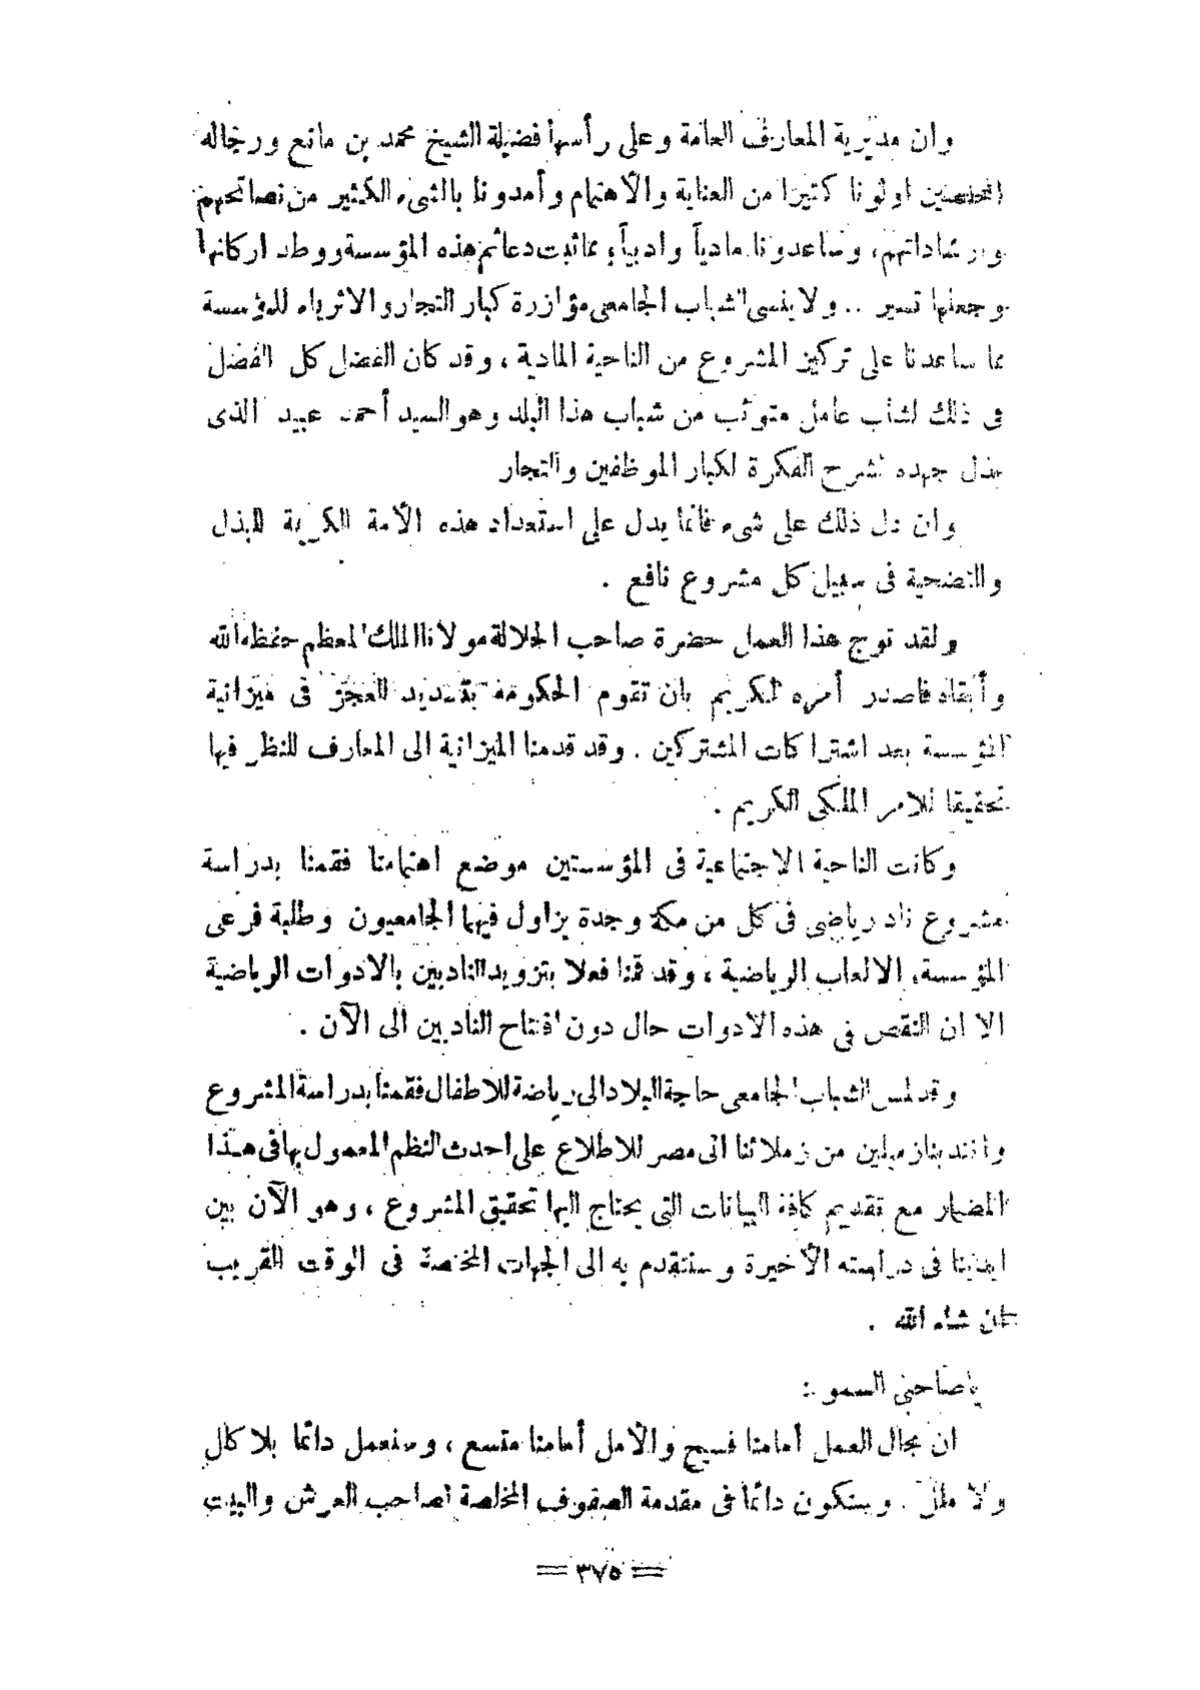 وان مديرية المعارف العامة وعلى رأسها فضيلة الشيخ محمد بن مانع ورجاله
المخلصين اولونا كثيرا من العناية والأهتمام وأمدونا بالشىء الكثير من نصائحهم
وارشاداتهم، وساعدونا مادياً وادبياً، مما ثبت دعائم هذه المؤسسة ووطد اركانها
وجعلها تسير .. ولا ينسى الشباب الجامعى مؤازرة كبار التجار والاثرياء للمؤسسة
مما ساعدنا على تركيز المشروع من الناحية المادية ، وقد كان الفضل كل الفضل
فى ذلك لشاب عامل متوثب من شباب هذا البلد وهو السيد أحمد عبيد الذى
بذل جهده لشرح الفكرة لكبار الموظفين والتجار
وان دل ذلك على شىء فانما يدل على استعداد هذه الأمة الكريمة للبذل
والتضحية فى سبيل كل مشروع نافع .
ولقد توج هذا العمل حضرة صاحب الجلالة مولانا الملك المعظم حفظه الله
وأبقاه فاصدر أمره الكريم بان تقوم الحكومة بتسديد العجز فى ميزانية
المؤسسة بعد اشتراكات المشتركين . وقد قدمنا الميزانية الى المعارف للنظر فيها
تحقيقا للامر الملكى الكريم .
وكانت الناحية الاجتماعية فى المؤسستين موضع اهتمامنا فقمنا بدراسة
مشروع ناد رياضى فى كل من مكة وجدة يزاول فيهما الجامعيون وطلبة فرعى
المؤسسة، الالعاب الرياضية ، وقد قمنا فعلا بتزويد الناديين بالادوات الرياضية
الا ان النقص فى هذه الادوات حال دون افتتاح الناديين الى الآن .
وقد لمس الشباب الجامعى حاجة البلاد الى رياضة للاطفال فقمنا بدراسة المشروع
وانتدبنا زميلين من زملائنا الى مصر للاطلاع على احدث النظم المعمول بها فى هذا
المضمار مع تقديم كافة البيانات التى يحتاج اليها تحقيق المشروع ، وهو الآن بين
ايدينا فى دراسته الأخيرة وسنتقدم به الى الجهات المختصة فى الوقت القريب
ان شاء الله .
يا صاحبى السمو :
ان مجال العمل أمامنا فسيح والأمل أمامنا متسع ، وسنعمل دائما بلا كلل
ولا ملل . وسنكون دائما فى مقدمة الصفوف المخلصة لصاحب العرش والبيت
== ٣٧٥ ==